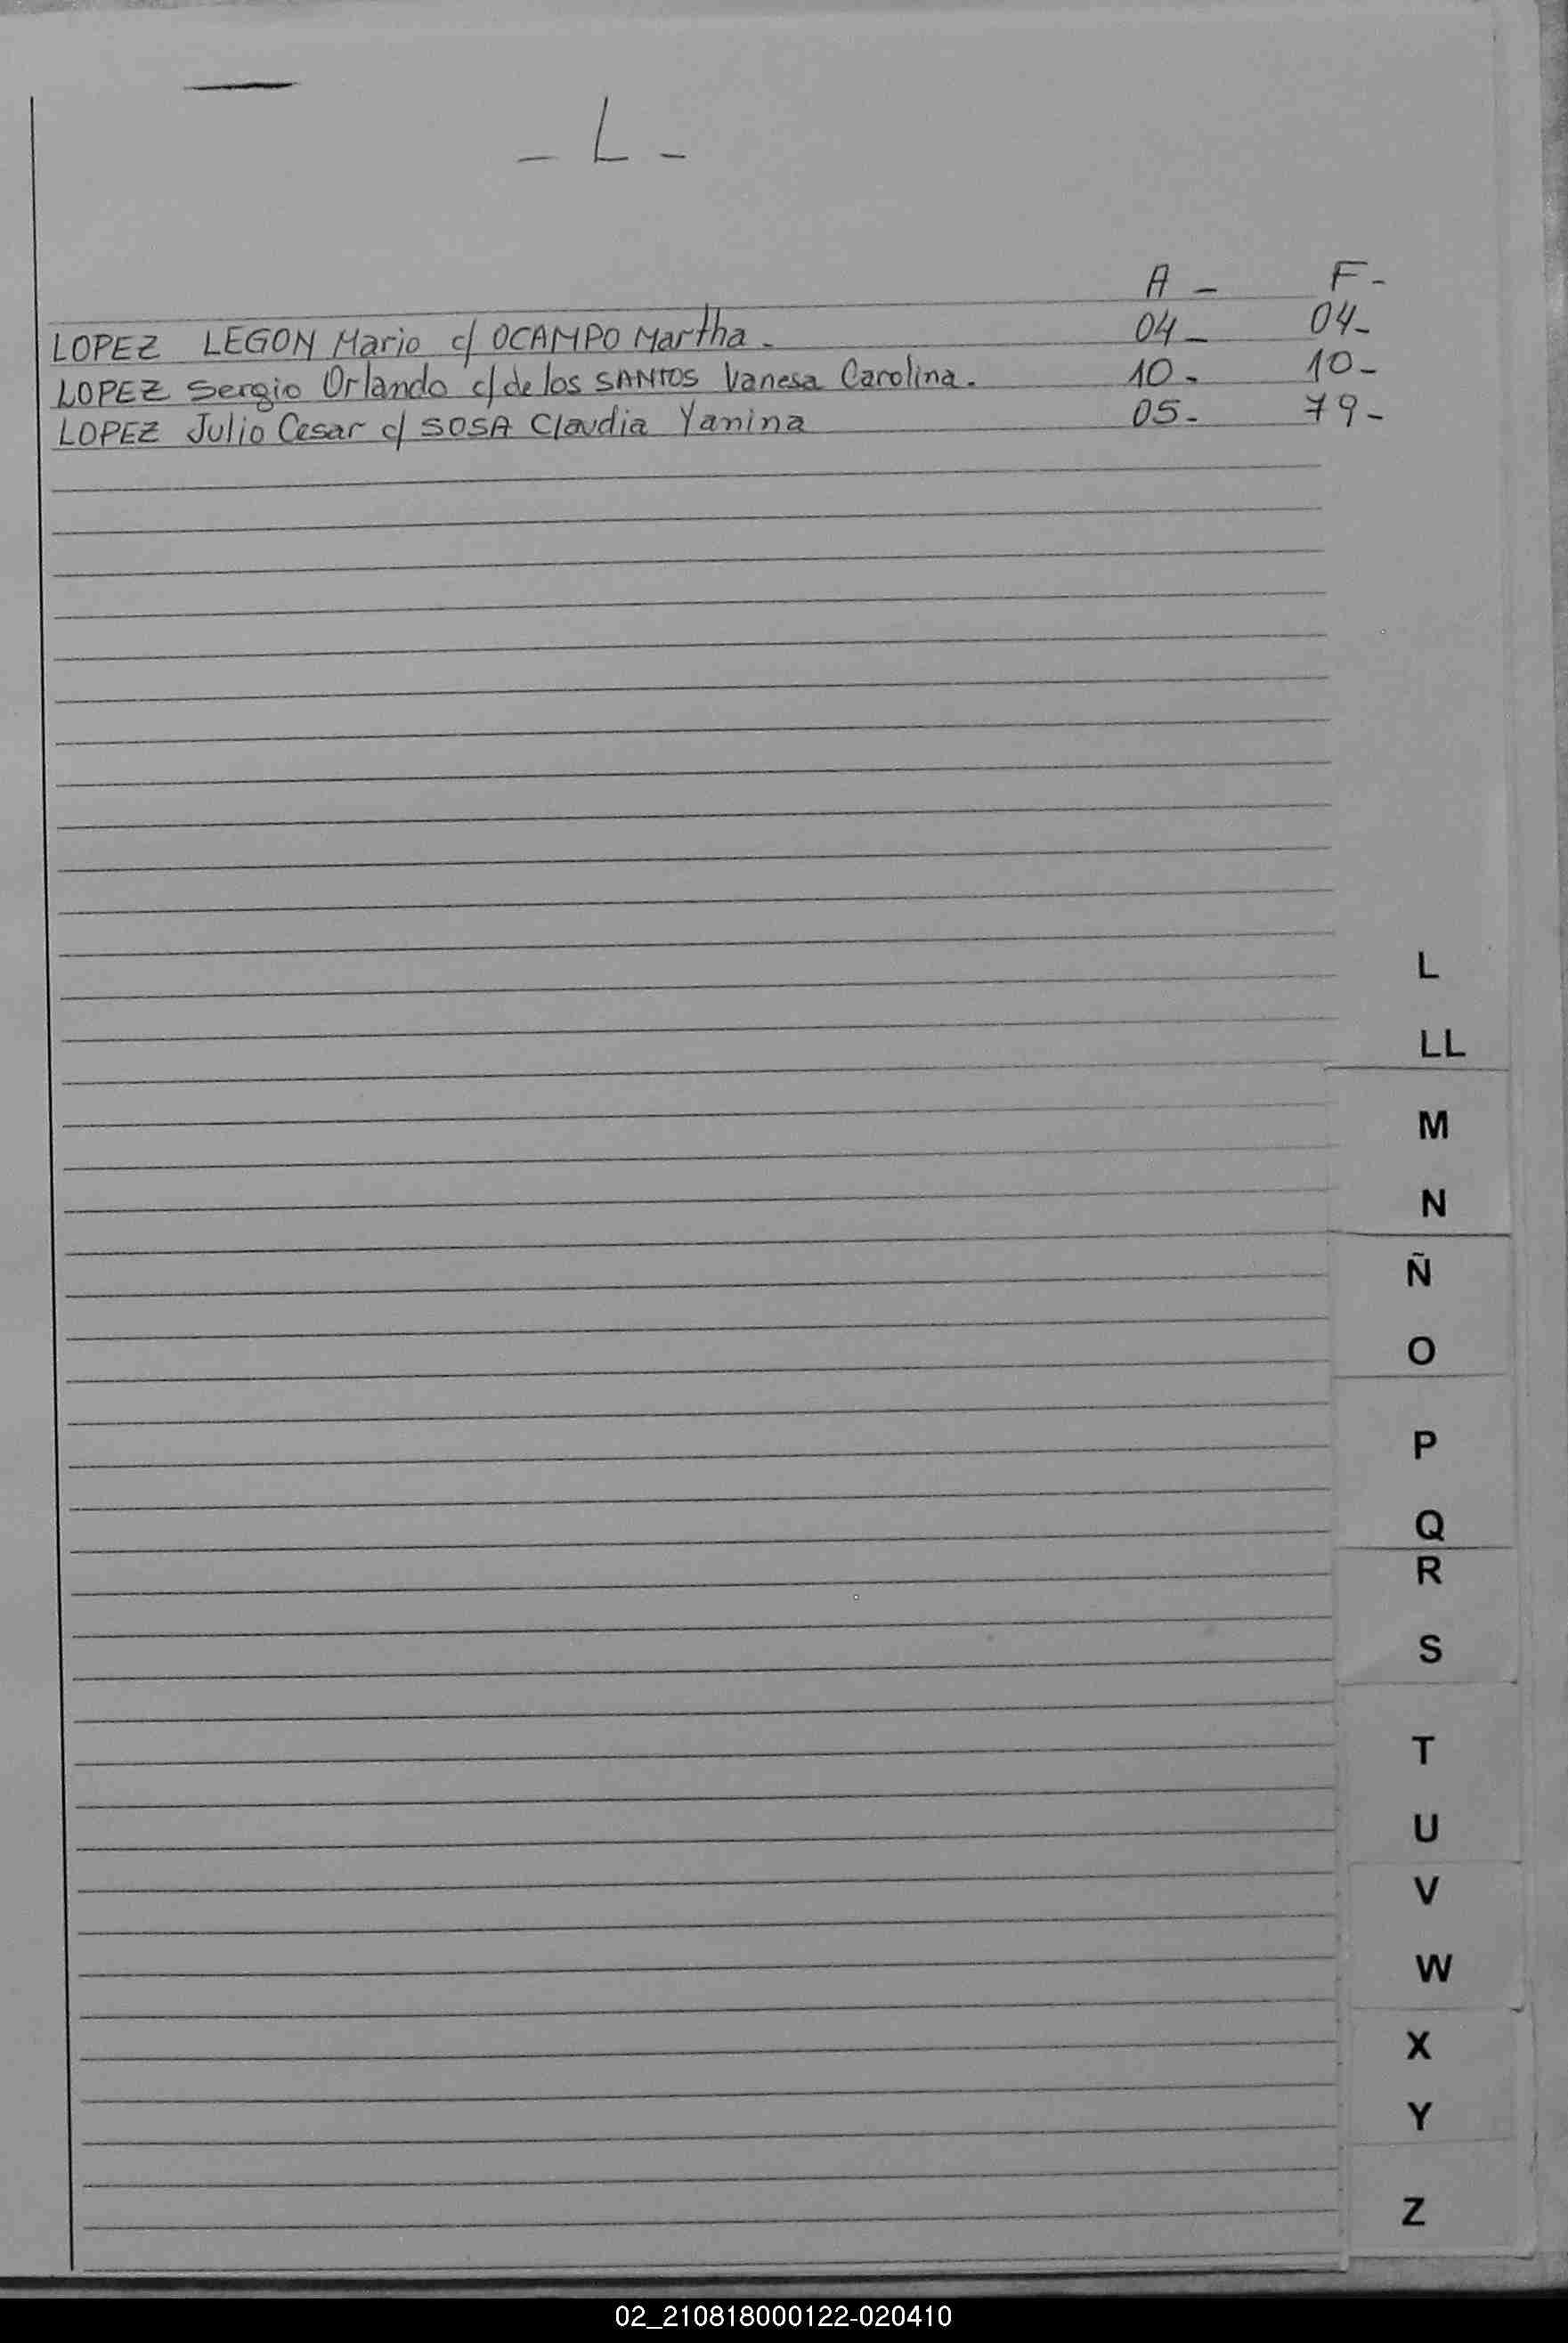 - L -
A - F -
LOPEZ LEGON Mario c/ OCAMPO Martha - 04 - 04 -
LOPEZ Sergio Orlando c/ de los SANTOS Vanesa Carolina. 10 - 10 -
LOPEZ Julio Cesar c/ SOSA Claudia Yanina 05 - 79 -
L
LL
M
N
Ñ
O
P
Q
R
S
T
U
V
W
X
Y
Z
02_210818000122-020410